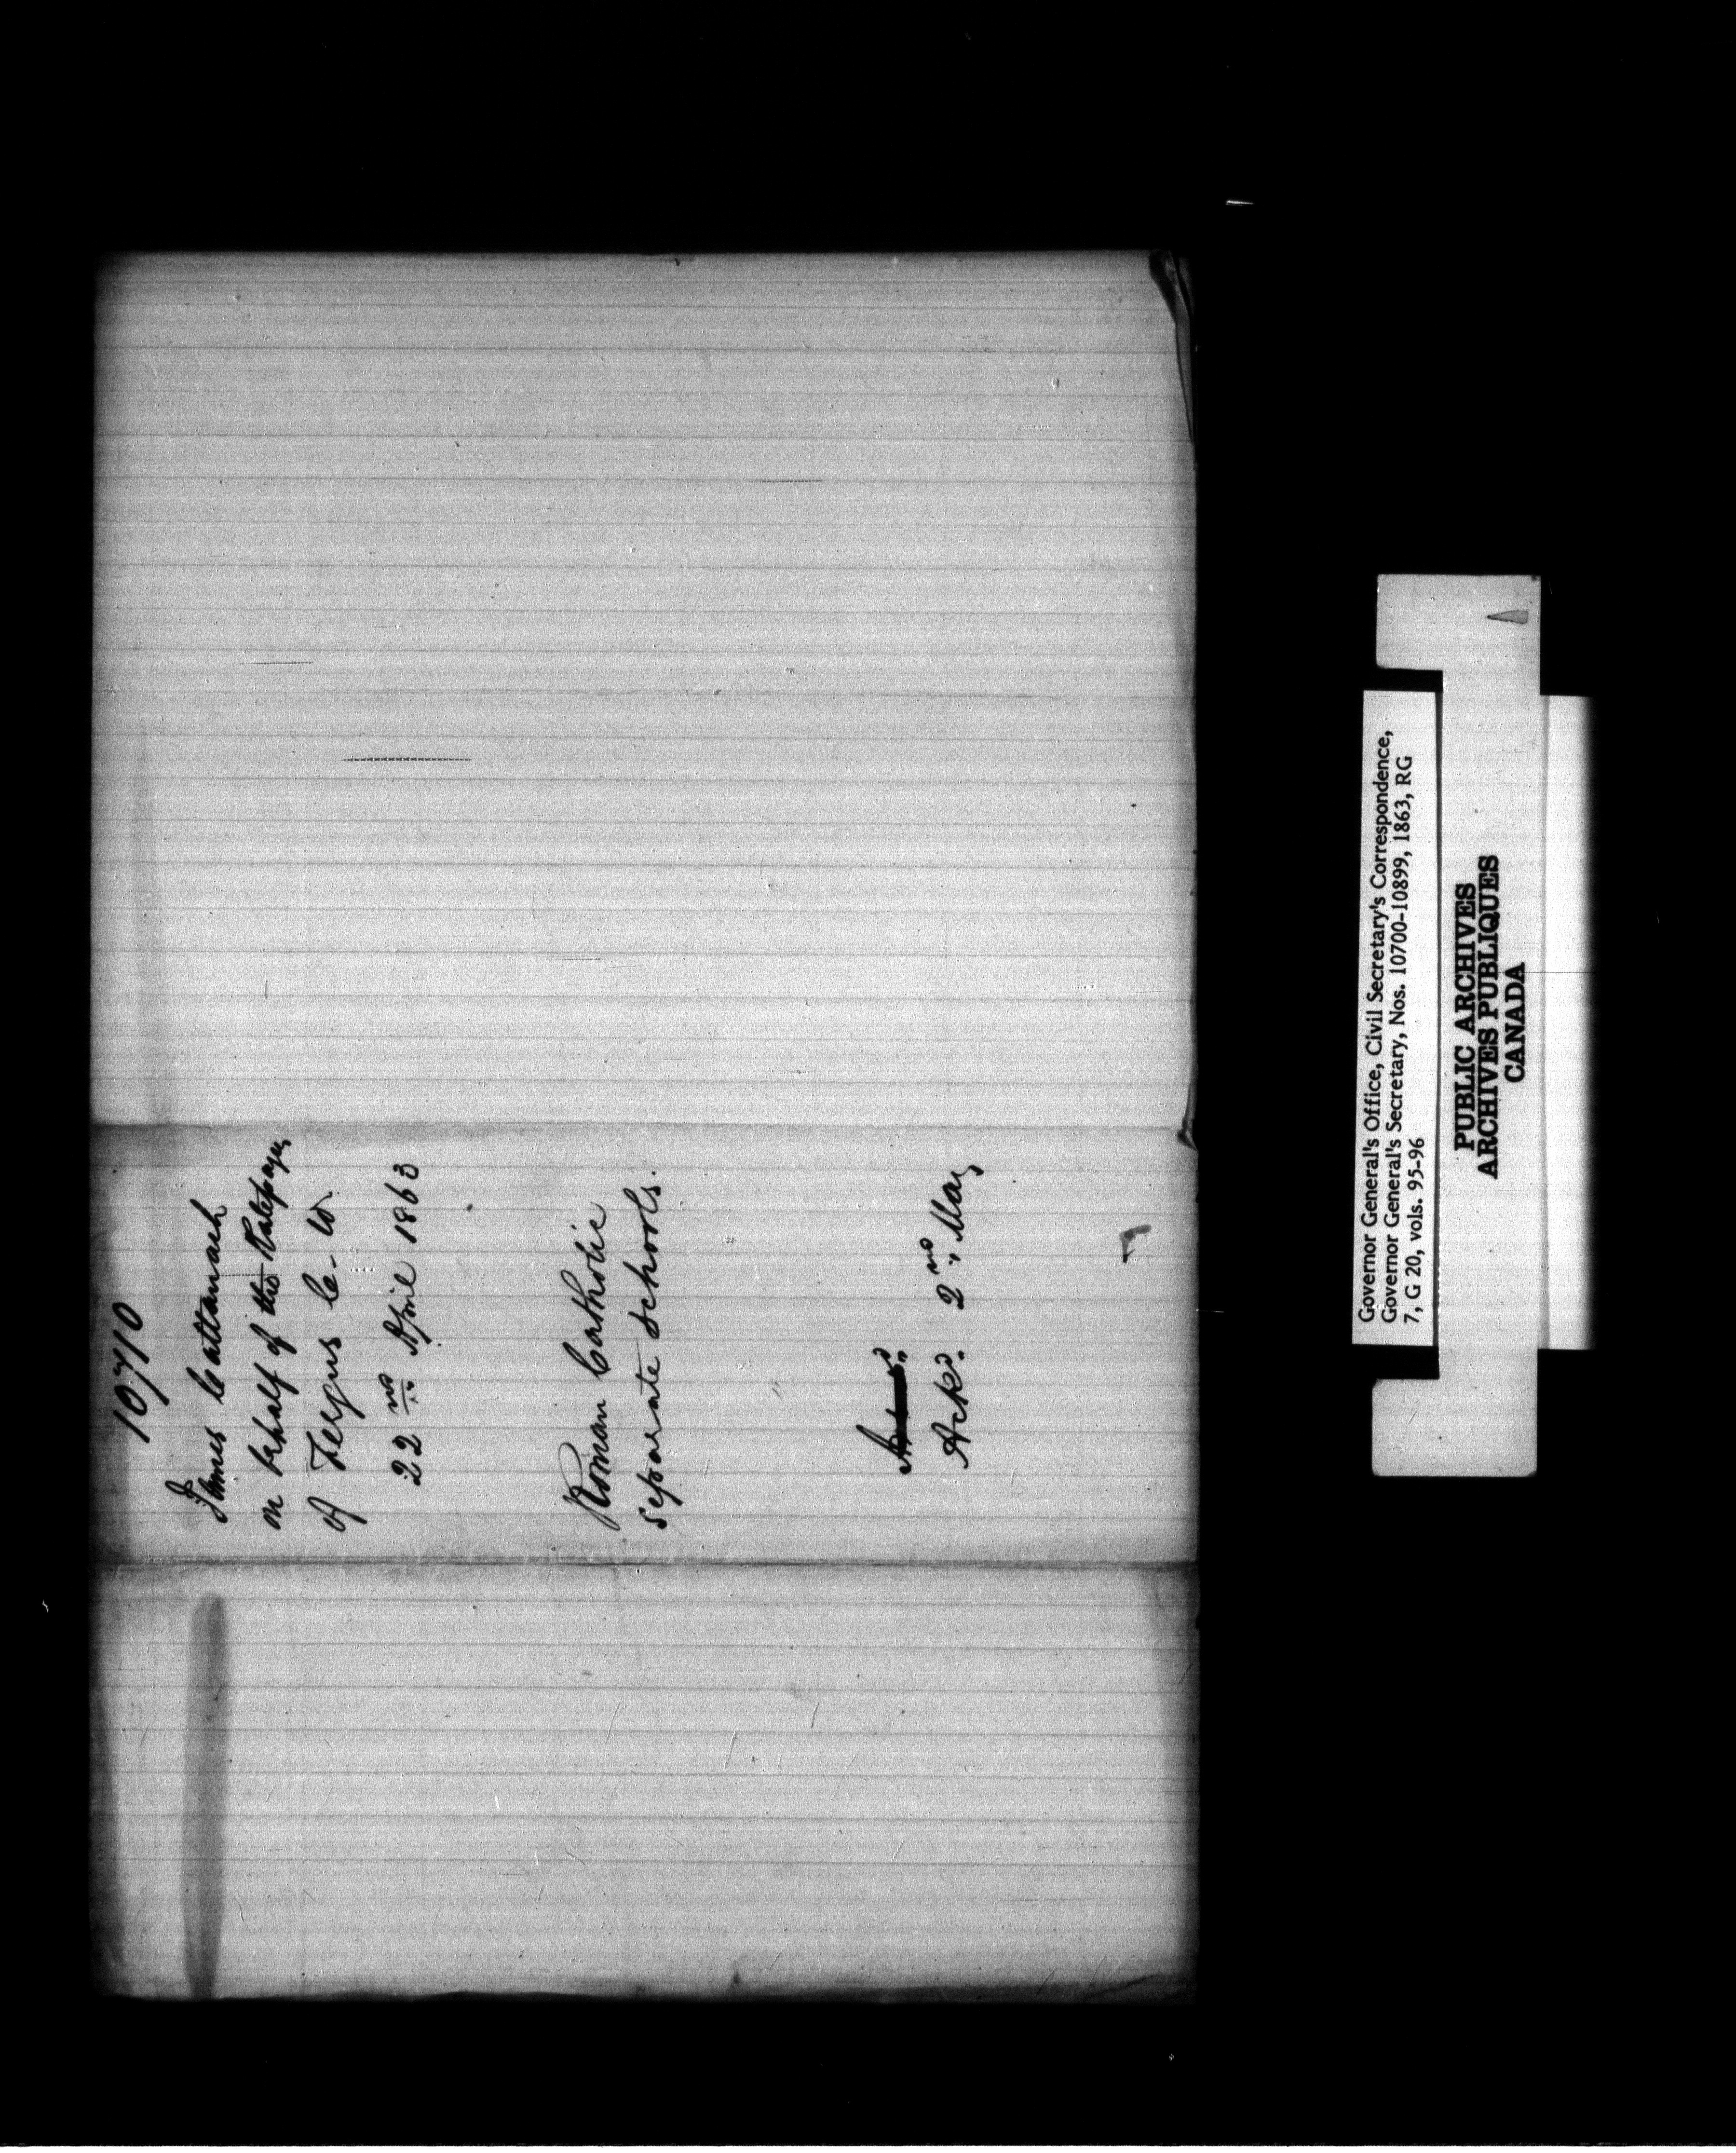 10710
James Cattanach
on behalf of the Ratepayers
of Fergus C. W.
22nd April 1863
Roman Catholic
separate schools.
Ackd. 2nd May
Governor General's Office, Civil Secretary's Correspondence,
Governor General's Secretary, Nos. 10700-10899, 1863, RG
7, G 20, vols. 95-96
PUBLIC ARCHIVES
ARCHIVES PUBLIQUES
CANADA